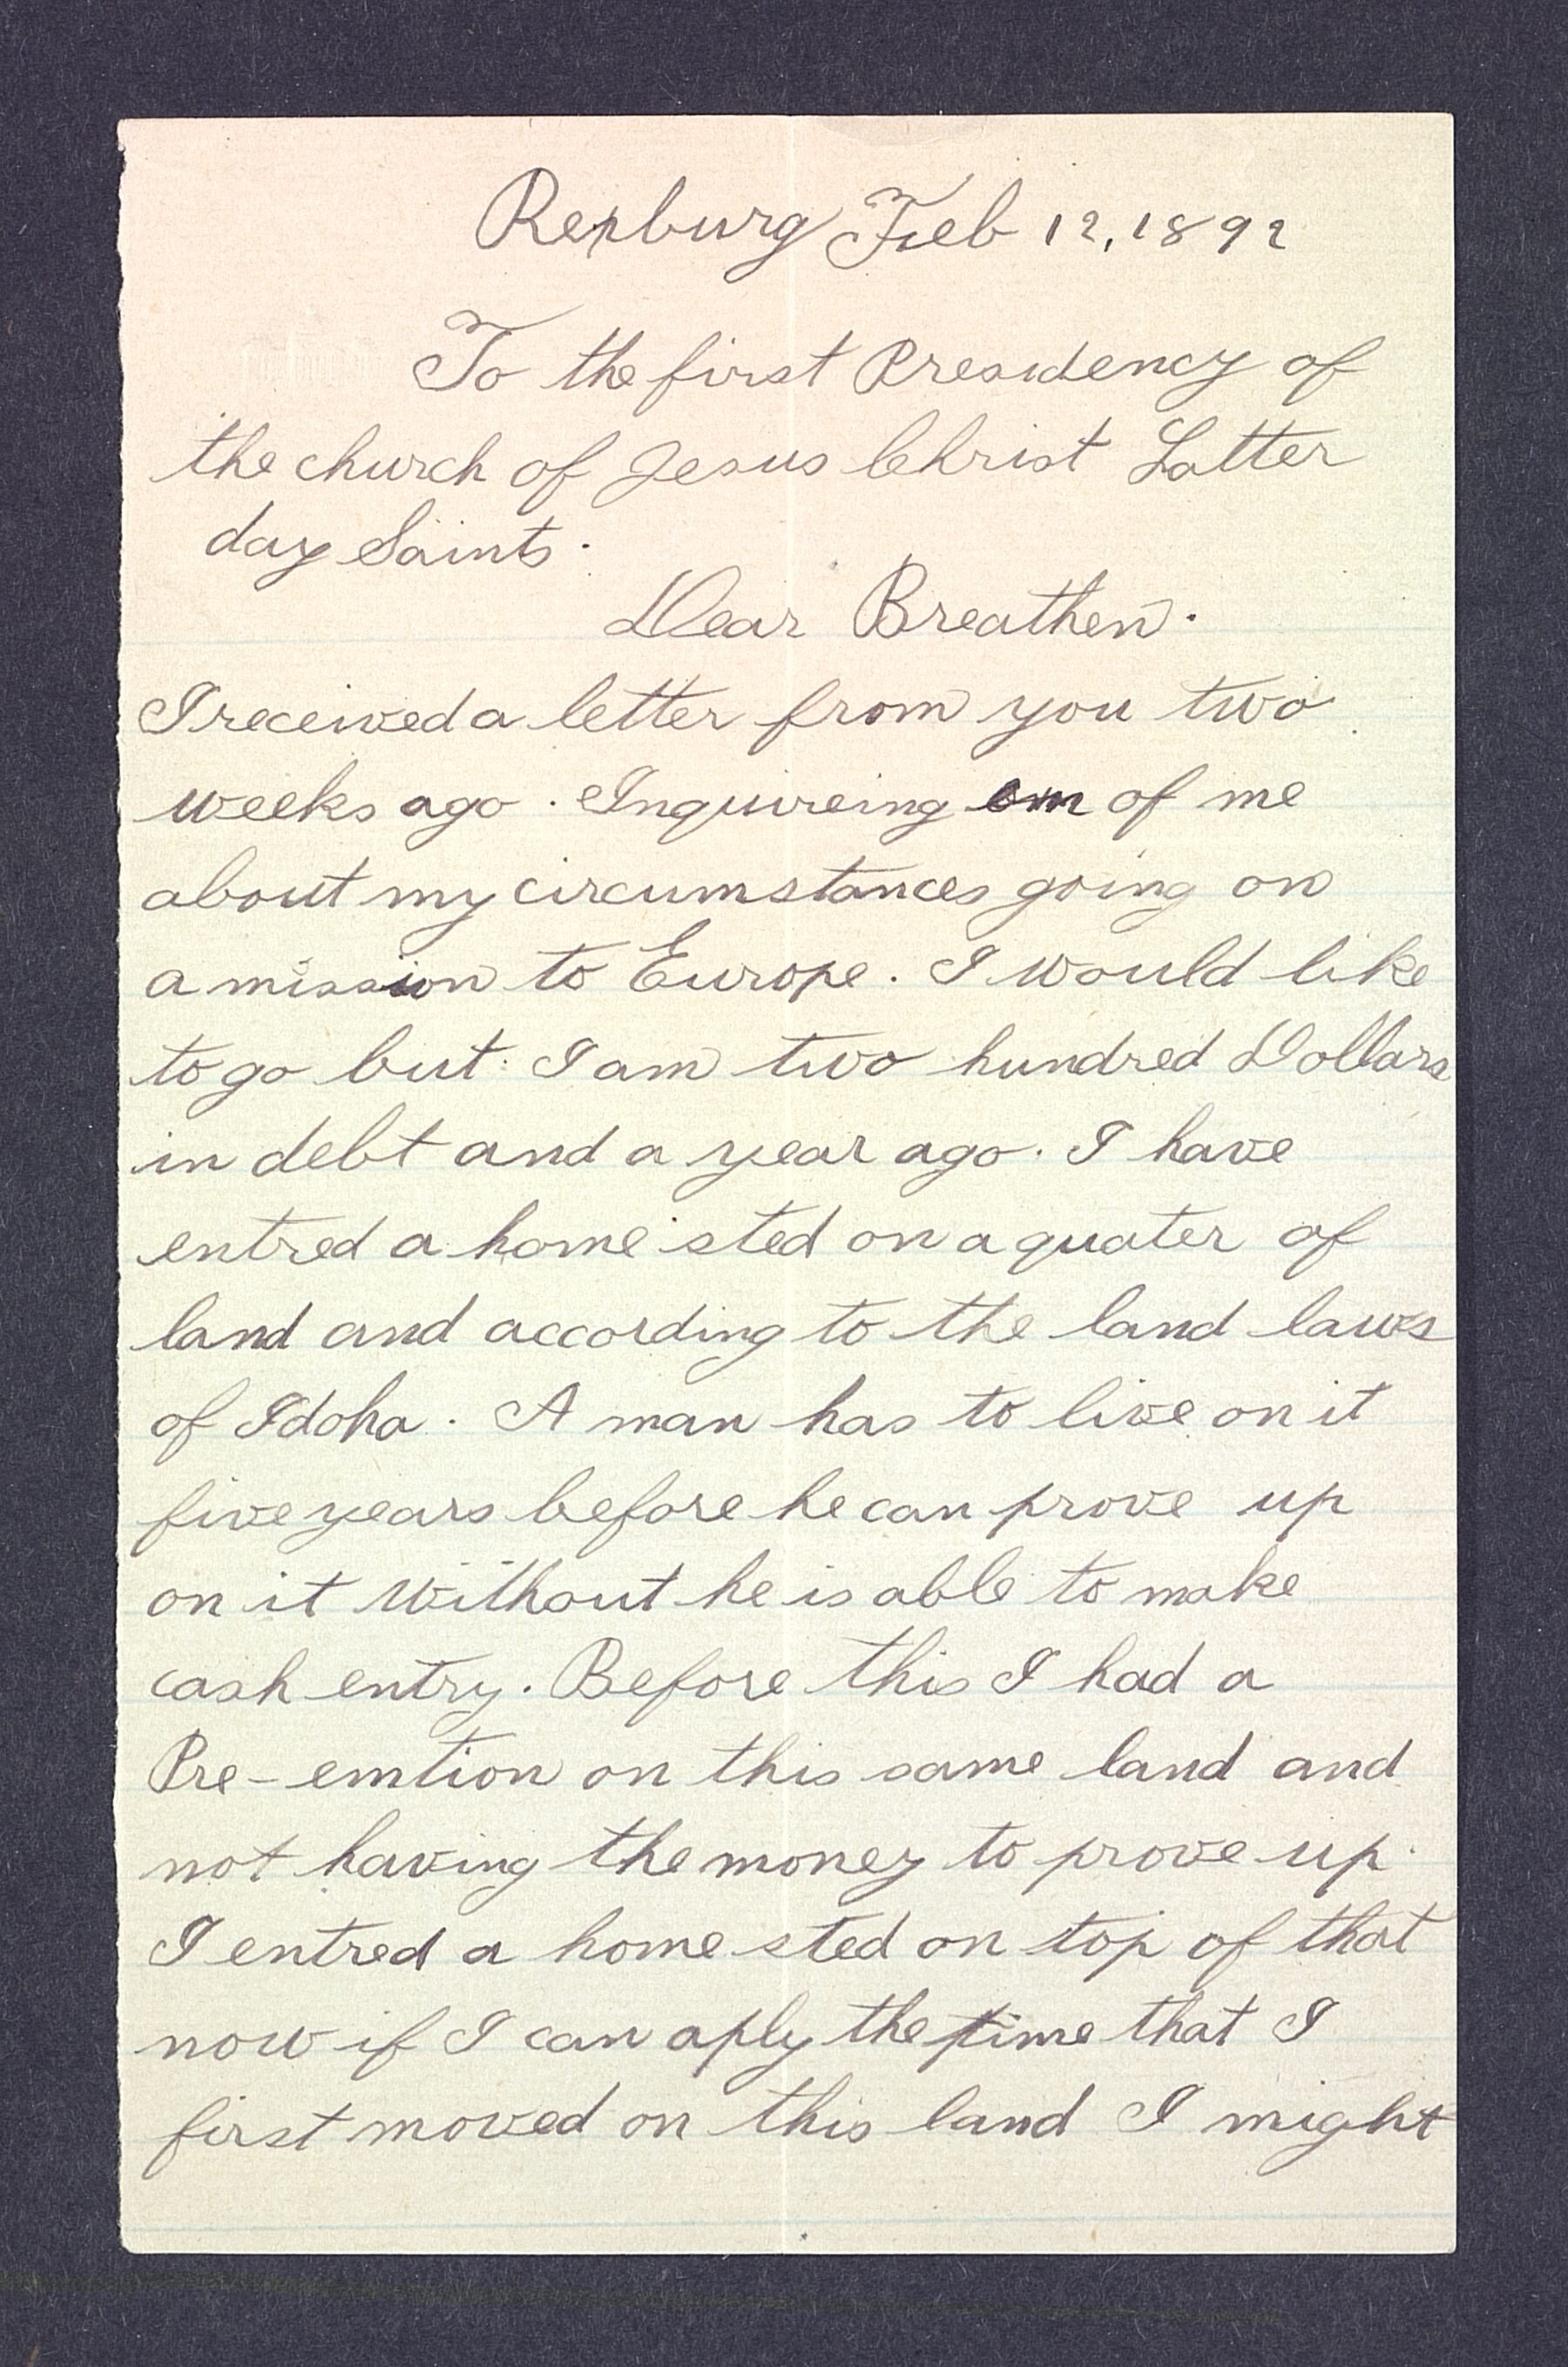 Rexburg Feb 12, 1892
To the first Presidency of
the church of Jesus Christ Latter
day Saints.
Dear Breathen.
I received a letter from you two
weeks ago. Inquireing om of me
about my circumstances going on
a mission to Europe. I would like
to go but I am two hundred Dollars
in debt and a year ago. I have
entred a home sted on a quater of
land and according to the land laws
of Idoha. A man has to live on it
five years before he can prove up
on it without he is able to make
cash entry. Before this I had a
Pre-emtion on this same land and
not having the money to prove up.
I entred a home sted on top of that
now if I can aply the time that I
first moved on this land I might